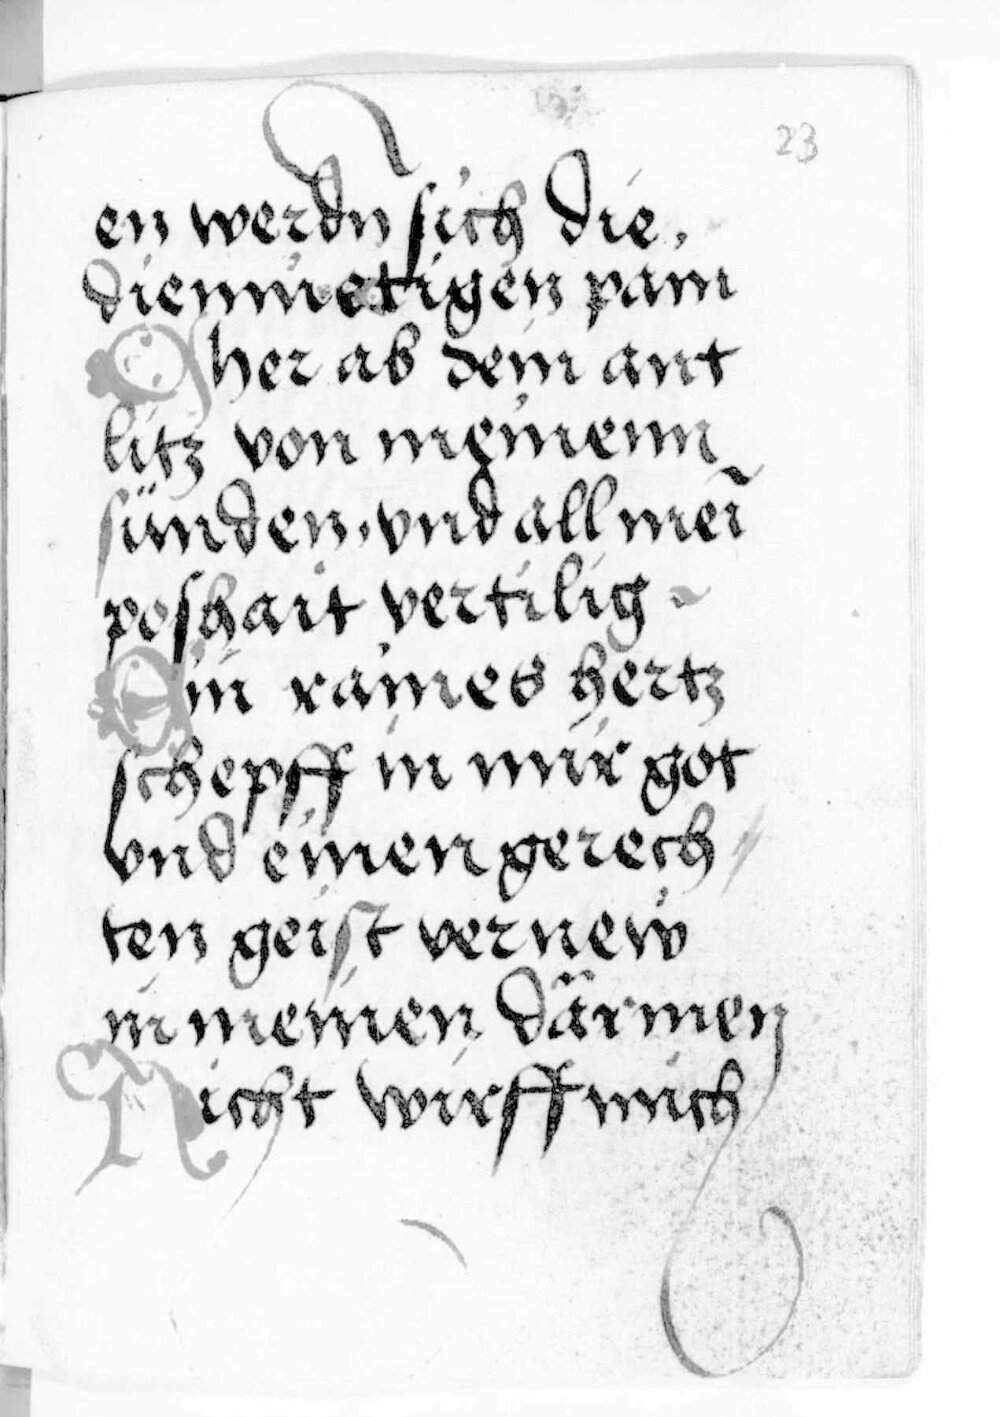 23
en werdn sich die,
diemuetigen pain
Cher ab dein ant
litz von meinenn
sünden, vnd all mei̅
poshait vertilig
Ein raines hertz
schepff in mir got
vnd einen gerech
ten geist vernew
in meinen därmen
Nicht wirff mich